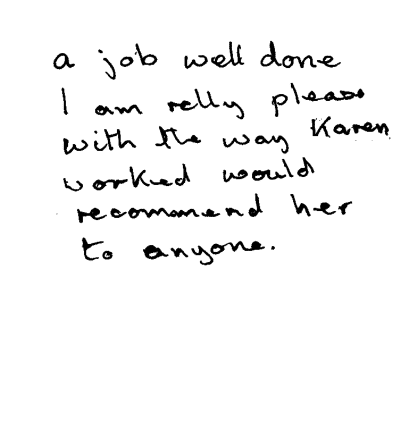 a job well done
I am relly please
with the way Karen
worked would
recommend her
to anyone.